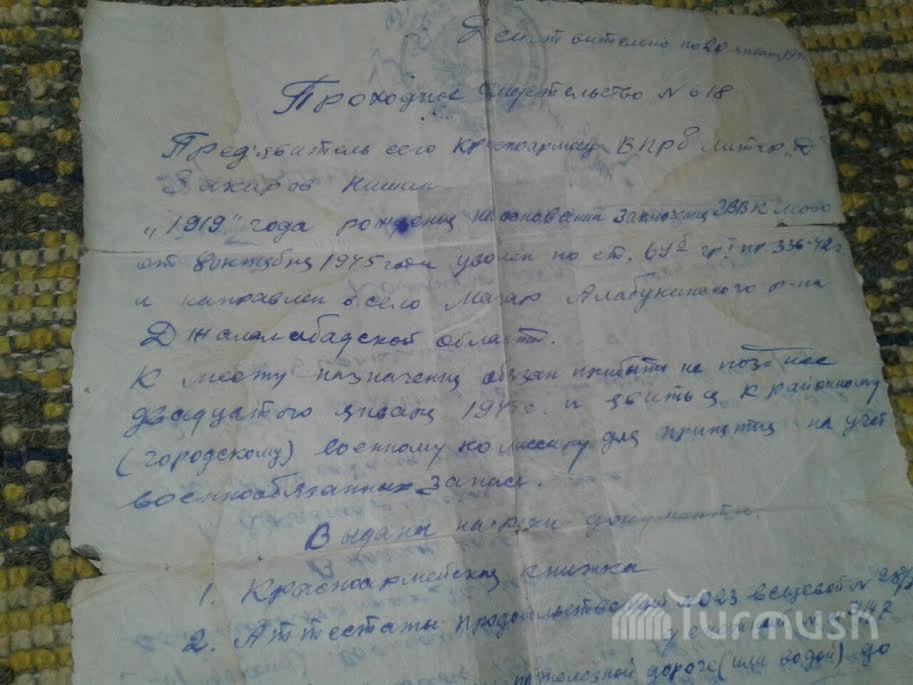 Действительно по 20 января
Проходное свидетельство № 618
Предъявитель сего Красноармеец ВПрб Литер „Д
Закиров
„1919" года рождения на основании заключения ЭВВК
от 8 октября 1945 года уволен по ст. 69б гр I пр 336-42г
и направлен в село Мазар Алабукинского р-на
Джалалабадской области.
К месту назначения обязан прибыть не позднее
двадцатого января 1945г. и явиться к районному
(городскому) военному комиссару для принятия на учет
военнообязанных запаса.
Выданы на руки документы
1. Красноармейская книжка
2. Аттестаты продовольственный № 023 вещевой №
по железной дороге (или водой) до
Turmush